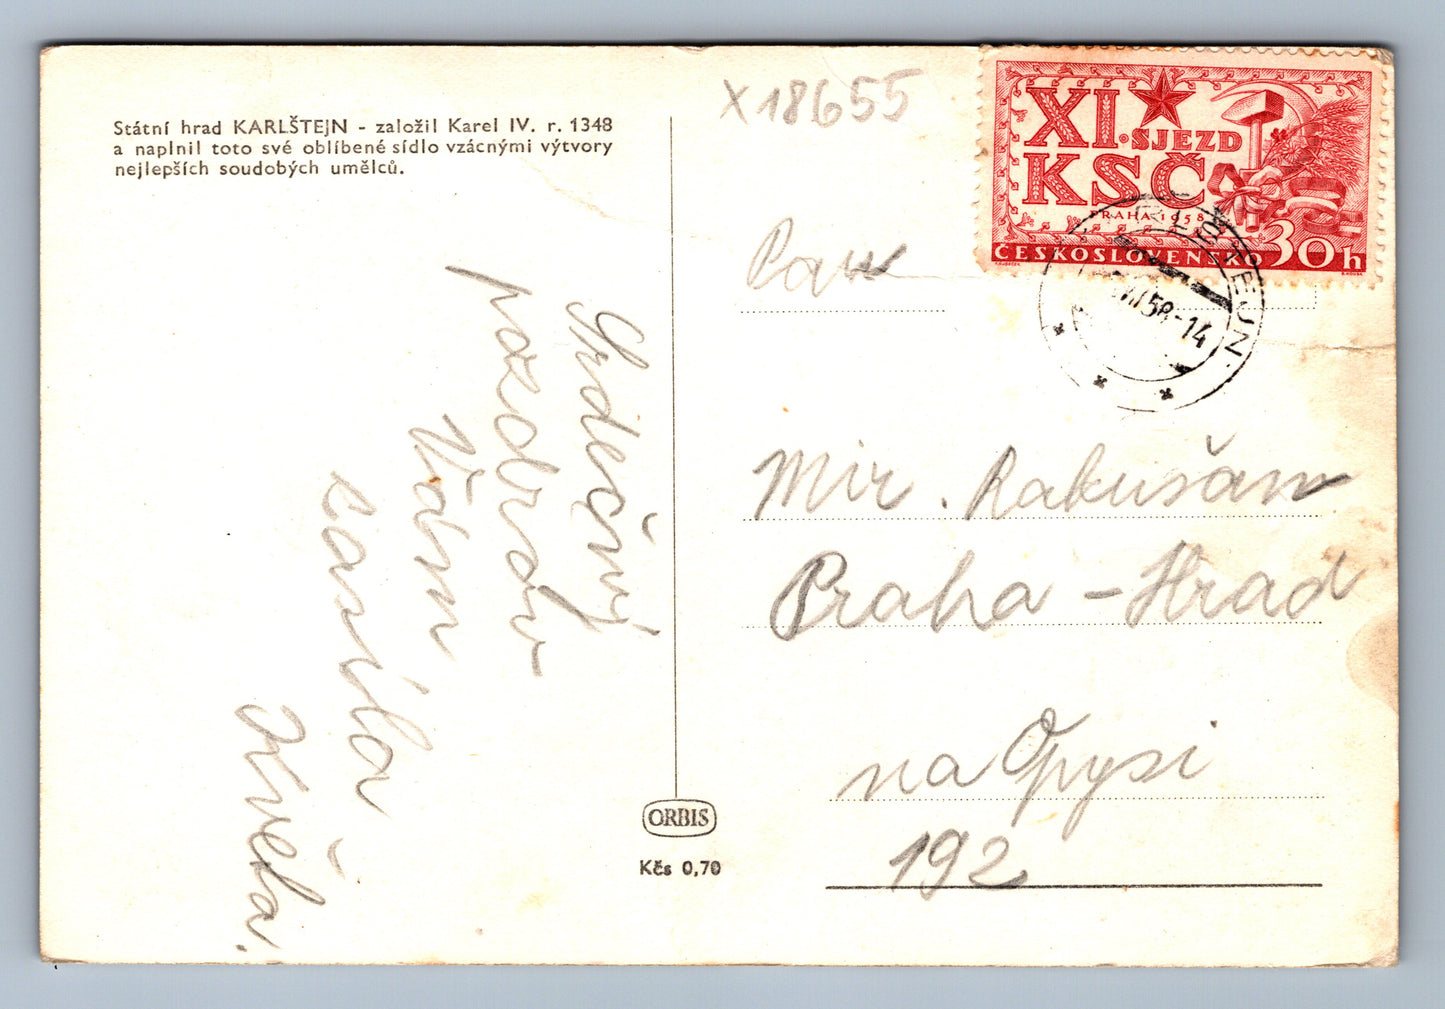 Státní hrad KARLŠTEJN - založil Karel IV. r. 1348
a naplnil toto své oblíbené sídlo vzácnými výtvory
nejlepších soudobých umělců.
X18655
XI. SJEZD
KSČ
PRAHA 1958
30h
ČESKOSLOVENSKO
58-14
Srdečný
pozdrav
Vám
Květa.
Mir. Rakušan
Praha - Hrad
na Opyši
192
ORBIS
Kčs 0,70